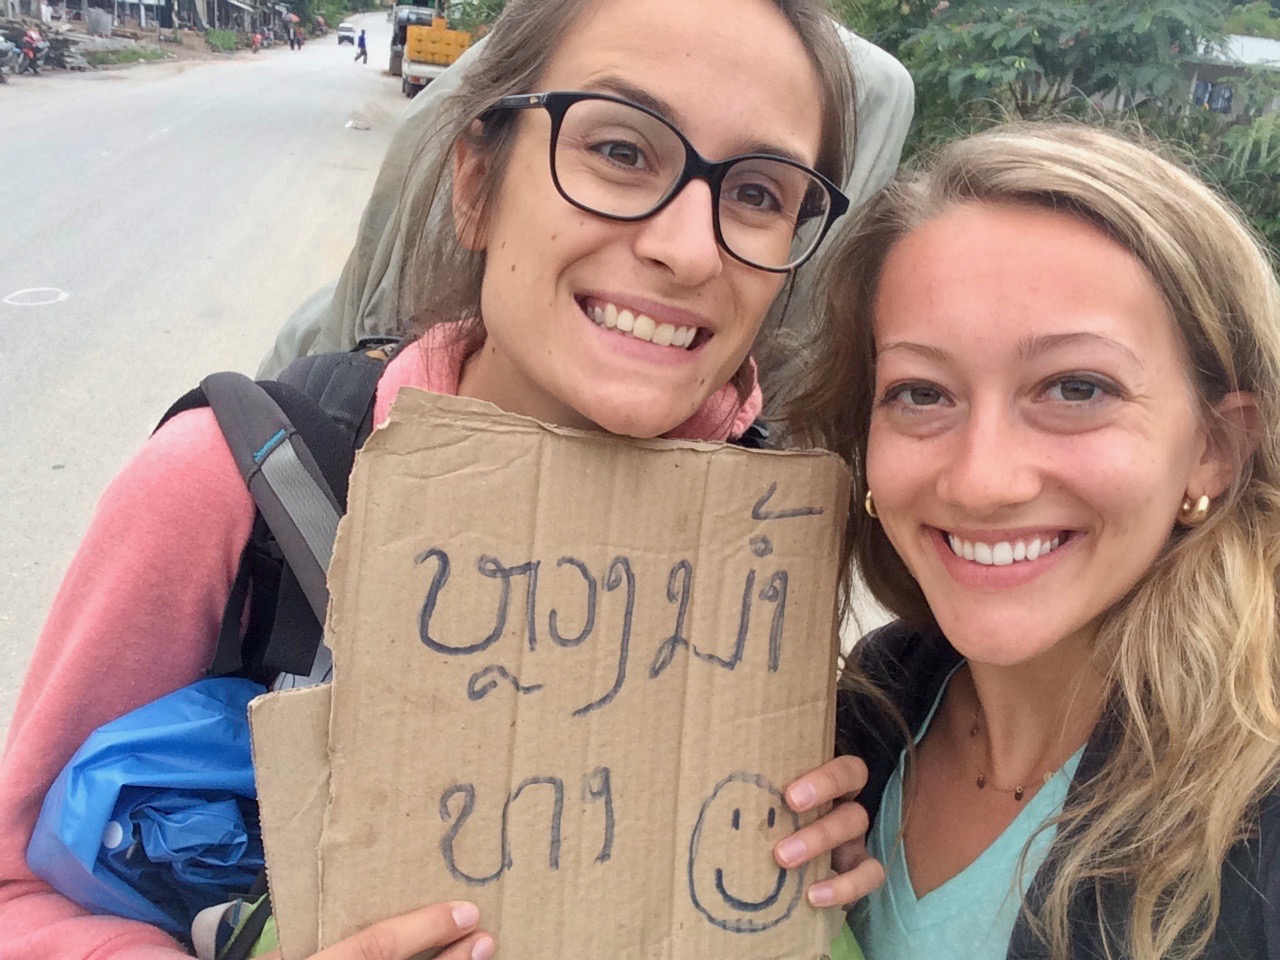 ຫຼວງນ້ຳ
ທາ